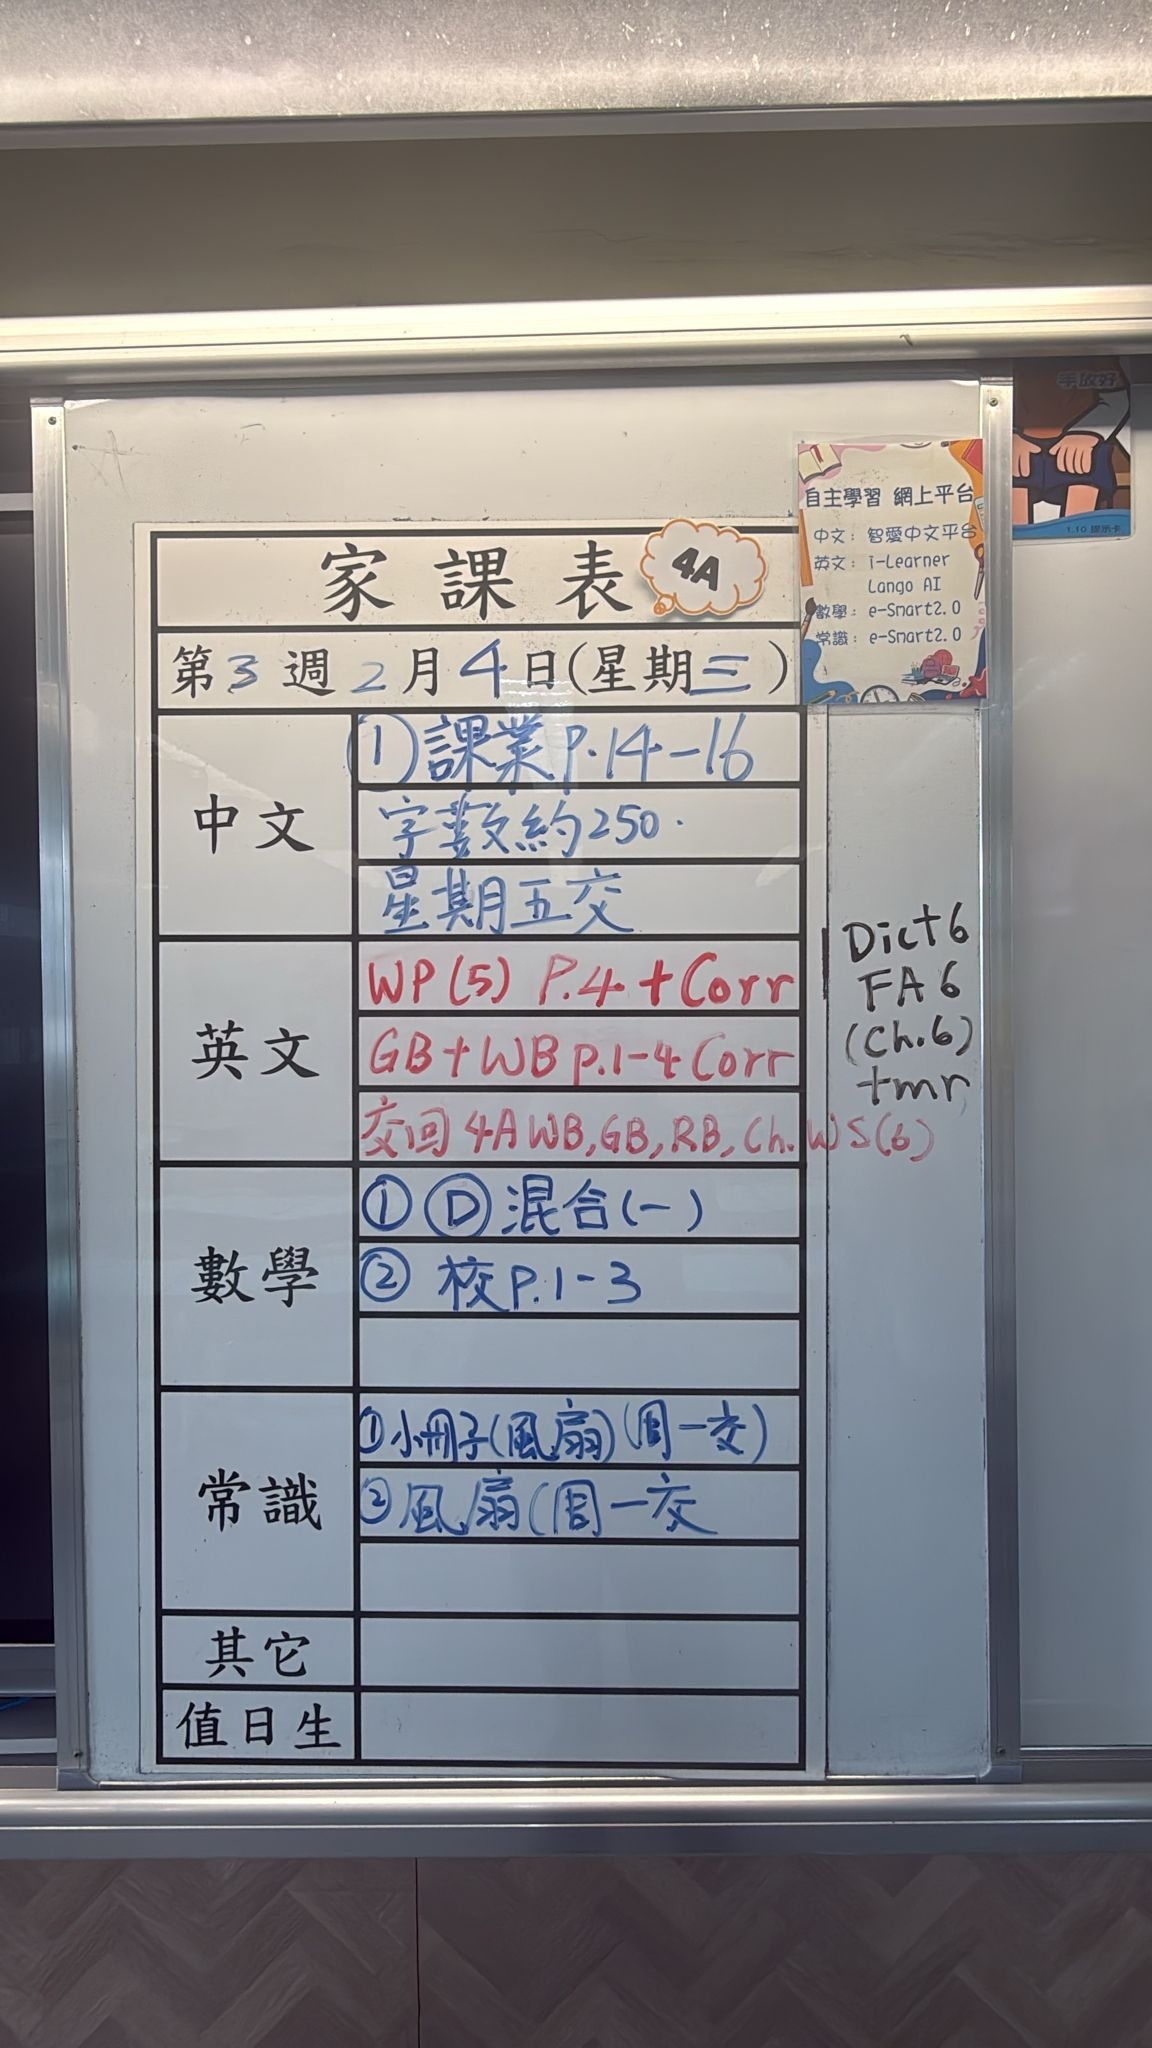 手放好
1.10 提示卡
自主學習 網上平台
中文：智愛中文平台
英文：i-Learner
Lango AI
數學：e-Smart2.0
常識：e-Smart2.0
家課表
4A
第3週2月4日(星期三)
中文
①課業P.14-16
字數約250.
星期五交
英文
WP(5) P.4 + Corr
GB+WB p.1-4 Corr
交回4A WB, GB, RB, Ch. WS(6)
Dict 6
FA 6
(Ch.6)
tmr
數學
① Ⓓ 混合(一)
② 校P.1-3
常識
①小冊子(風扇)(周一交)
②風扇(周一交
其它
值日生